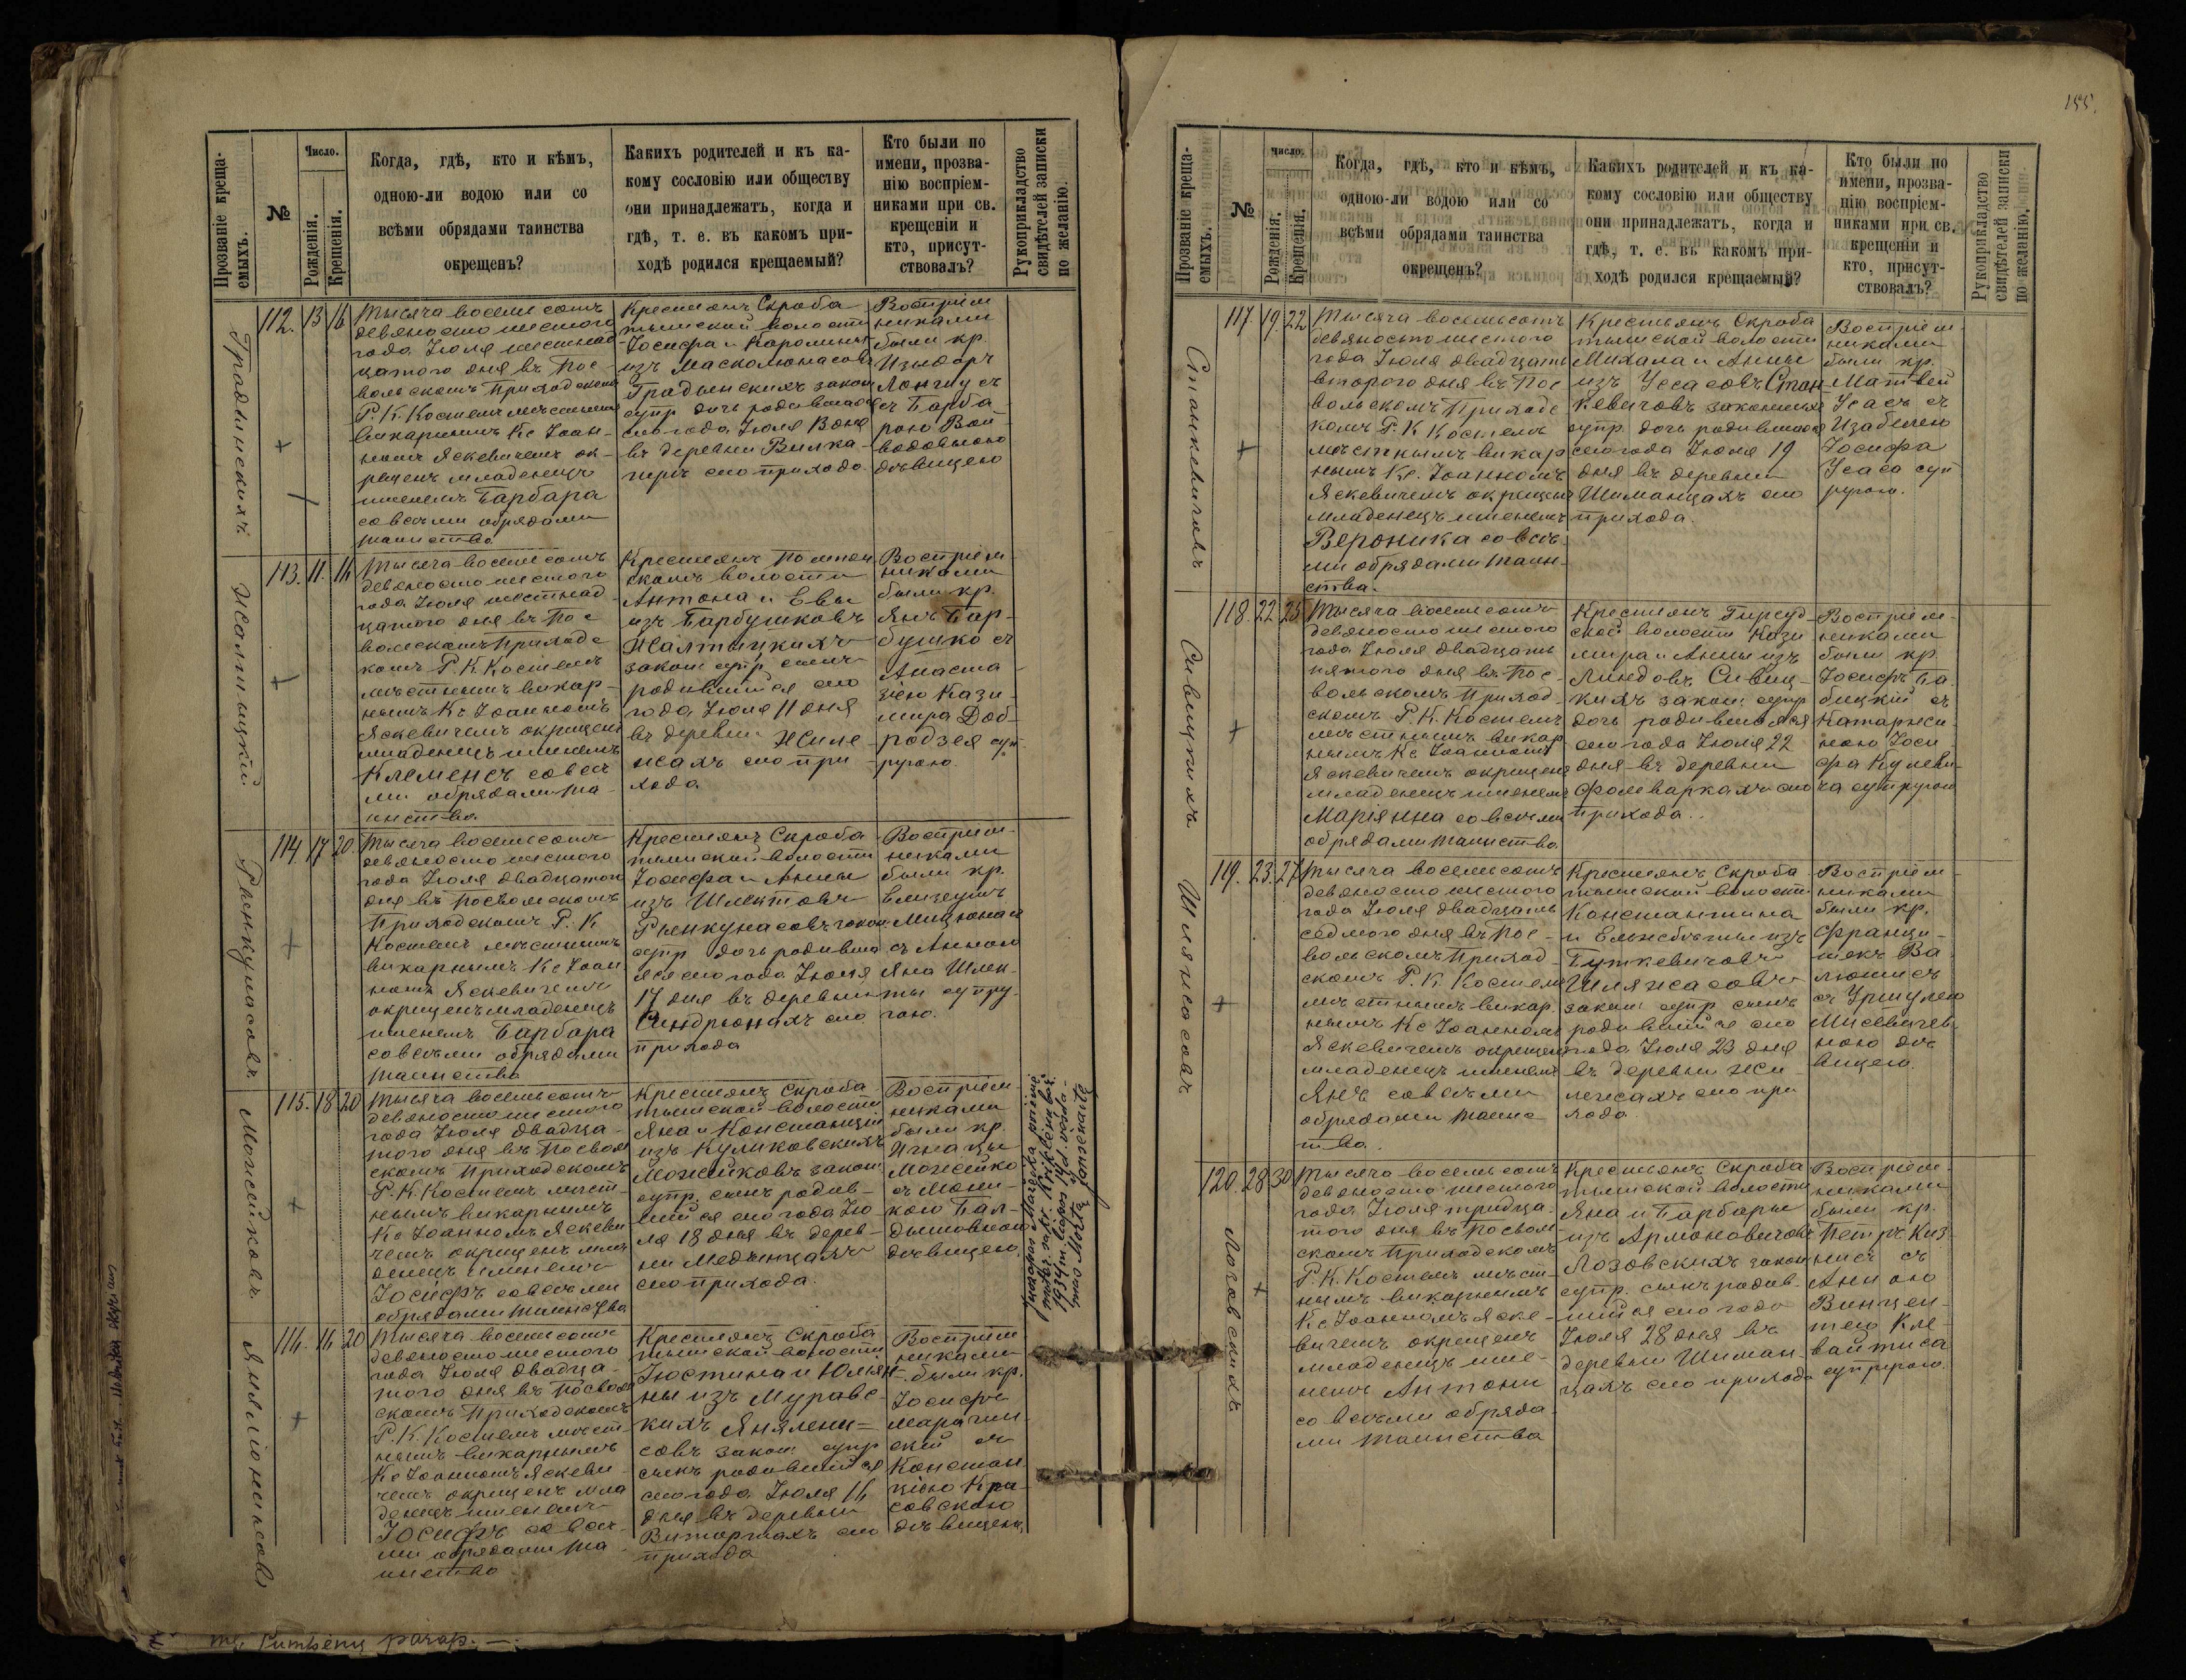 155.
Прозваніе креща-
емыхъ.
№
Число.
Рожденія.
Крещенія.
Когда, гдѣ, кто и кѣмъ,
одною-ли водою или со
всѣми обрядами таинства
окрещенъ?
Какихъ родителей и къ ка-
кому сословію или обществу
они принадлежатъ, когда и
гдѣ, т. е. въ какомъ при-
ходѣ родился крещаемый?
Кто были по
имени, прозва-
нію воспріем-
никами при св.
крещеніи и
кто, присут-
ствовалъ?
Рукоприкладство
свидѣтелей записки
по желанію.
112. 13 16
Тысяча восемь сотъ
девяносто шестого
года Іюля шестнад
цатого дня въ Пос-
вольскомъ Приходскомъ
Р. К. Костелѣ мѣстнымъ
викарнымъ Кс Іоан-
номъ Яскевичемъ ок-
рещенъ младенецъ
именемъ Барбара
со всѣми обрядами
таинства
Крестьянъ Скроба-
тышской волости
Іосифа и Каролины
изъ Масколюнасовъ
Градинскихъ закон
супр дочь родившаяся
сего года Іюля 13 дня
въ деревни
сего прихода
Воспріем
никами
были кр.
Изыдоръ
съ Барба-
рою Вои-
водовною
дѣвицею
113. 11. 16
Тысяча восемь сотъ
девяносто шестого
года Іюля шестнад
цатого дня въ Пос
вольскомъ Приходс
комъ Р. К. Костелѣ
мѣстнымъ викар-
нымъ Кс Іоанномъ
Яскевичемъ окрещенъ
младенецъ именемъ
Клеменсъ со всѣ
ми обрядами та-
инства
Крестьянъ
волости
Антона и Евы
изъ Барбушковъ
Жалтыцкихъ
закон супр сынъ
родившійся сего
года Іюля 11 дня
въ деревни Жиле-
жсахъ сего при-
хода
Воспріем
никами
были кр.
Янъ Бар-
бушко съ
Анаста-
зіею Кази-
мира Доб-
родзея суп-
ругою.
114. 17 20.
Тысяча восемь сотъ
девяносто шестого
года Іюля двадцатого
дня въ Посвольскомъ
Приходскомъ Р. К
Костелѣ мѣстнымъ
викарнымъ Кс Іоан
номъ Яскевичемъ
окрещенъ младенецъ
именемъ Барбара
со всѣми обрядами
таинства
Крестьянъ Скроба
тышской волости
Іосифа и Анны
изъ Шлектовъ
Рынкунасовъ закон.
супр дочь родивша
яся сего года Іюля
17 дня въ деревни
Синдріонахъ сего
прихода
Воспріем-
никами
были кр.
съ Анною
Яна Шлек-
ты супру-
гою.
115. 18 20
Тысяча восемь сотъ
девяносто шестого
года Іюля двадца-
того дня въ Посволь
скомъ Приходскомъ
Р. К. Костелѣ мѣст-
нымъ викарнымъ
Кс Іоанномъ Яскеви
чемъ окрещенъ мла
денецъ именемъ
Іосифъ со всѣми
обрядами таинства
Крестьянъ Скроба
тышской волости
Яна и Констанціи
изъ Куликовскихъ
Можейковъ закон
супр. сынъ родив-
шійся сего года Ію
ля 18 дня въ дерев-
ни Медынцахъ
сего прихода.
Воспріем-
никами
были кр.
Игнацы
Можейко
съ Мони-
кою Бал-
дышовною
дѣвицею.
1934 m. liepos 14 d.
116. 16 20
Тысяча восемь сотъ
девяносто шестого
года Іюля двадца-
того дня въ Посволь
скомъ Приходскомъ
Р. К. Костелѣ мѣст-
нымъ викарнымъ
Кс Іоанномъ Яскеви-
чемъ окрещенъ мла
денецъ именемъ
Іосифъ со всѣ-
ми обрядами та-
инства
Крестьянъ Скроба
тышской волости
Юстина и Юлья-
ны изъ Муравс-
кихъ Янялюни-
совъ закон супр
сынъ родившійся
сего года Іюля 16
дня въ деревни
сего
прихода
Воспріем
никами
были кр.
Іосифъ
съ
Констан
ціею Кра-
совскою
дѣвицею
Прозваніе креща-
емыхъ.
№
число.
Рожденія.
Крещенія.
Когда, гдѣ, кто и кѣмъ,
одною-ли водою или со
всѣми обрядами таинства
окрещенъ?
Какихъ родителей и къ ка-
кому сословію или обществу
они принадлежатъ, когда и
гдѣ, т. е. въ какомъ при-
ходѣ родился крещаемый?
Кто были по
имени, прозва-
цію воспріем-
никами при св.
крещеніи и
кто, присут-
ствовалъ?
Рукоприкладство
свидѣтелей записки
по желанію.
Станкевичовъ
117. 19. 22
Тысяча восемьсотъ
девяносто шестого
года Іюля двадцать
второго дня въ Пос
вольскомъ Приходс
комъ Р. К Костелѣ
мѣстнымъ викар
нымъ Кс. Іоанномъ
Яскевичемъ окрещенъ
младенецъ именемъ
Вероника со всѣ-
ми обрядами таин-
ства.
Крестьянъ Скроба
тышской волости
Михала и Анны
изъ Усасовъ Стан-
кевичовъ законныхъ
супр. дочь родившаяся
сего года Іюля 19
дня въ деревни
Шиманцахъ сего
прихода.
Воспріем-
никами
были кр.
Матвей
Усасъ съ
Изабелею
Іосифа
Усаса суп
ругою.
Сивицкихъ
118. 22. 25
Тысяча восемь сотъ
девяносто шестого
года Іюля двадцать
пятого дня въ Пос-
вольскомъ Приход-
скомъ Р. К. Костелѣ
мѣстнымъ викар
нымъ Кс Іоанномъ
Яскевичемъ окрещенъ
младенецъ именемъ
Маріянна со всѣми
обрядами таинства
Крестьянъ Гирсуд-
ской волости Кази
мира и Анны изъ
Линдовъ Сивиц-
кихъ закон: супр
дочь родившаяся
сего года Іюля 22
дня въ деревни
Фольваркахъ сего
прихода..
Воспріем-
никами
были кр.
Іосифъ Ба-
бицкій съ
Катаржи-
ною Іоси
фа Кулеви-
ча супругою
119. 23. 27
Тысяча восемь сотъ
девяносто шестого
года Іюля двадцать
седмого дня въ Пос-
вольскомъ Приход-
скомъ Р. К Костелѣ
мѣстнымъ викар
нымъ Кс Іоанномъ
Яскевичемъ окрещенъ
младенецъ именемъ
Янъ со всѣми
обрядами таинс
тва.
Крестьянъ Скроба
тышской волости
Константина
и Ельжбѣты изъ
Буткевичовъ
Шляжасовъ
закон супр сынъ
родившійся сего
года Іюля 23 дня
въ деревни Жи-
лежсахъ сего при
хода
Воспріем-
никами
были кр.
Францы-
шекъ Ва-
съ Уршулею
Мисевичев-
ною дѣ-
вицею.
Лозовскихъ
120. 28 30
Тысяча восемь сотъ
девяносто шестого
года Іюля тридца-
того дня въ Посволь-
скомъ Приходскомъ
Р. К. Костелѣ мѣст-
нымъ викарнымъ
Кс Іоанномъ Яске-
вичемъ окрещенъ
младенецъ име-
немъ Антони
со всѣми обряда-
ми таинства
Крестьянъ Скроба
тышской волости
Яна и Барбары
изъ Армоновичовъ
Лозовскихъ закон
супр. сынъ родив-
шійся сего года
Іюля 28 дня въ
деревни Шиман-
цахъ сего прихода
Воспріем-
никами
были кр.
Петръ Киз-
нисъ съ
Анною
Винцен-
тего Кле-
вайтиса
супругою.